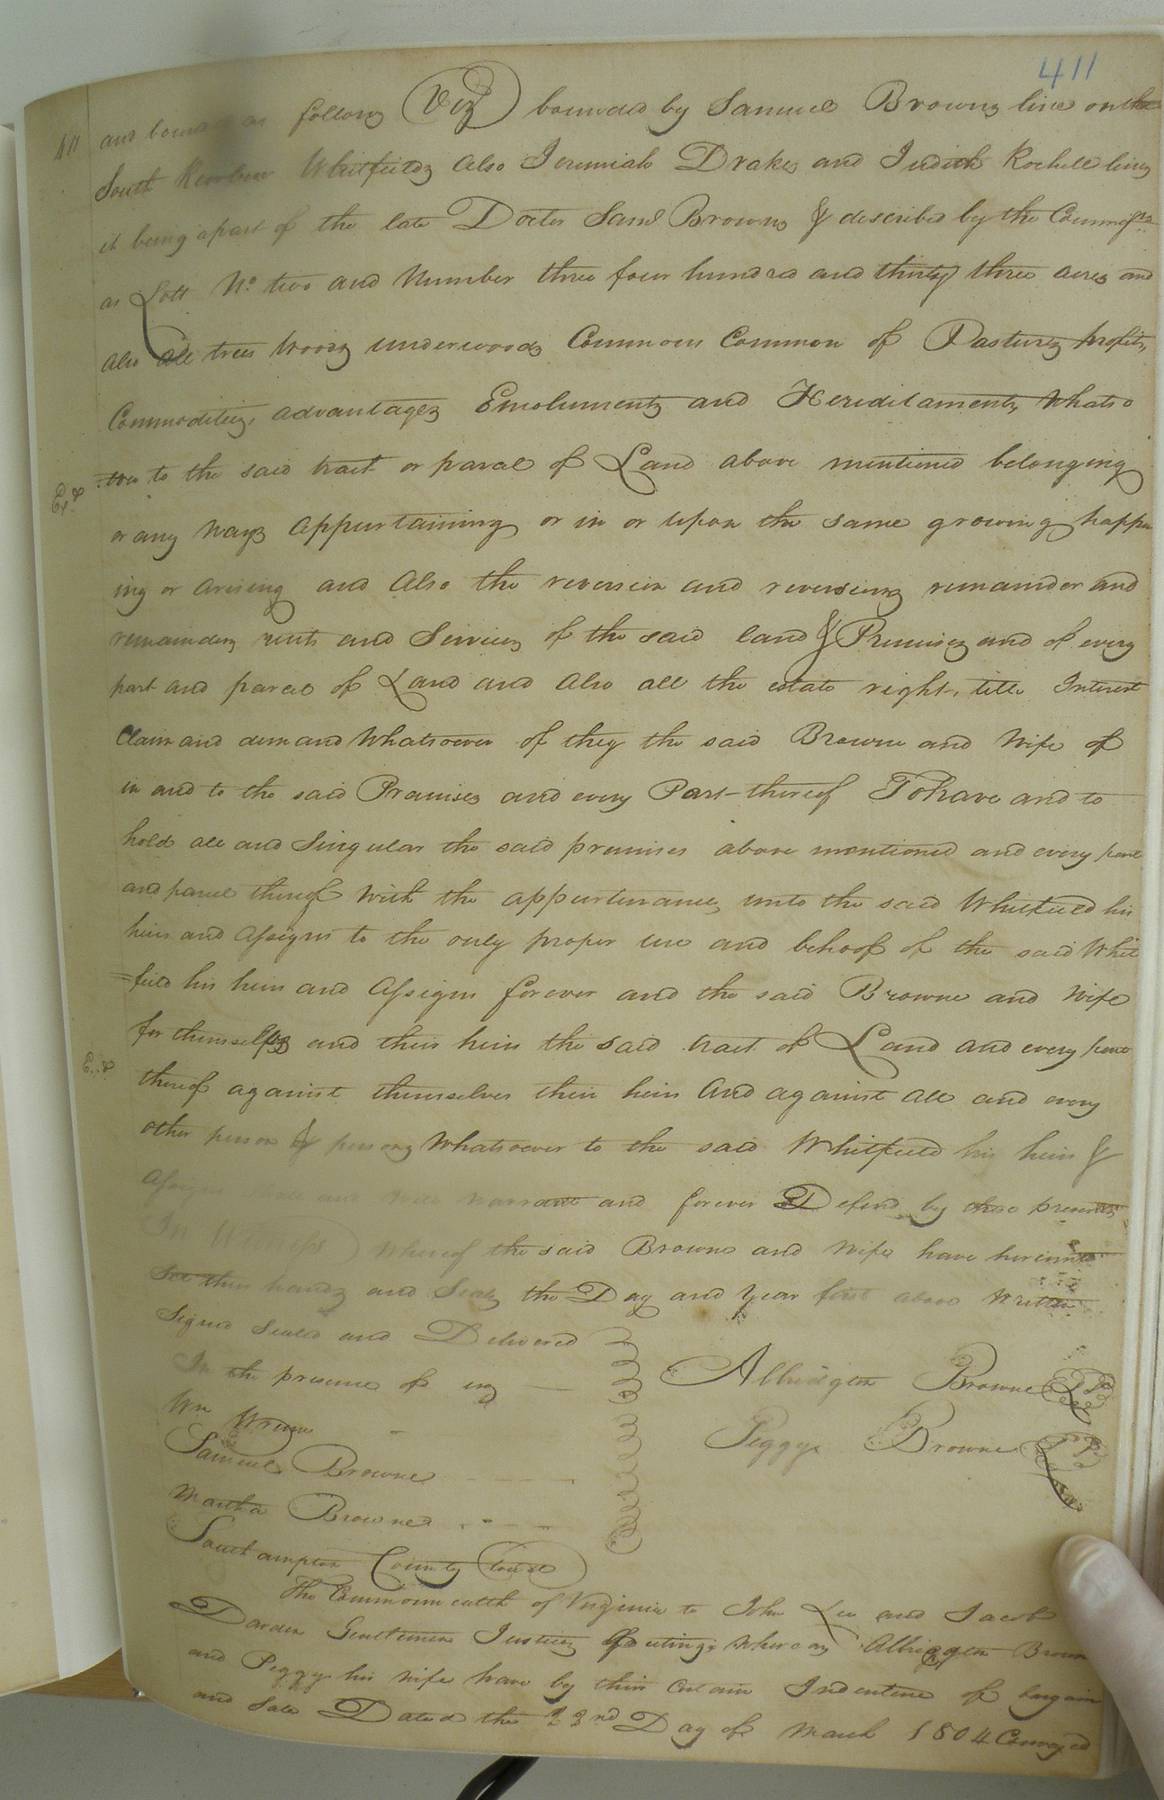 411
411 and bounded as follows Viz bounded by Samuel Browns line on the
South Reuben Whitfields also Jeremiah Drakes and Judith Rochell lines
it being a part of the late Doctor Saml Browns & described by the Commisrs
as Lott No. two and Number three four hundred and thirty three acres and
also all trees woods underwoods Commons Common of Pastures profits,
Commodities, advantages Emoluments and Hereditaments, Whatso
=ever to the said tract or parcel of Land above mentioned belonging
Exd
or any ways appurtaining or in or upon the same growing happn
ing or ariseing and also the reversion and reversions remainder and
remainders rents and Services of the said land & Premises and of every
part and parcel of Land and also all the estate right, title Interest
Claim and demand Whatsoever of they the said Browne and Wife of
in and to the said Premises and every Part thereof To have and to
hold all and Singular the said premises above mentioned and every part
and parcel thereof With the appurtenances, unto the said Whitfield his
heirs and assigns to the only proper use and behoof of the said Whit
=field his heirs and assigns forever and the said Browne and Wife
for themselfs and their heirs the said tract of Land and every part
E..d
thereof against themselves their heirs and against all and every
other person & persons Whatsoever to the said Whitfield his heirs &
assigns shall and will warrant and forever Defend by these presents
In Witness Whereof the said Browne and Wife have hereunto
set their hands and Seals the Day and Year first above Written
Signed Sealed and Delivered
In the presence of us
Abbidgton Browne LS
Wm
Peggy Browne LS
Samuel Browne
Martha Browne
Southampton County Court
The Commonwealth of Virginia to John Lee and Jacob
Darden Gentlemen Justices Greeting, Whereas Abbidgton Brown
and Peggy his wife have by their Certain Indenture of bargain
and Sale Dated the 23nd Day of March 1804 Conveyed